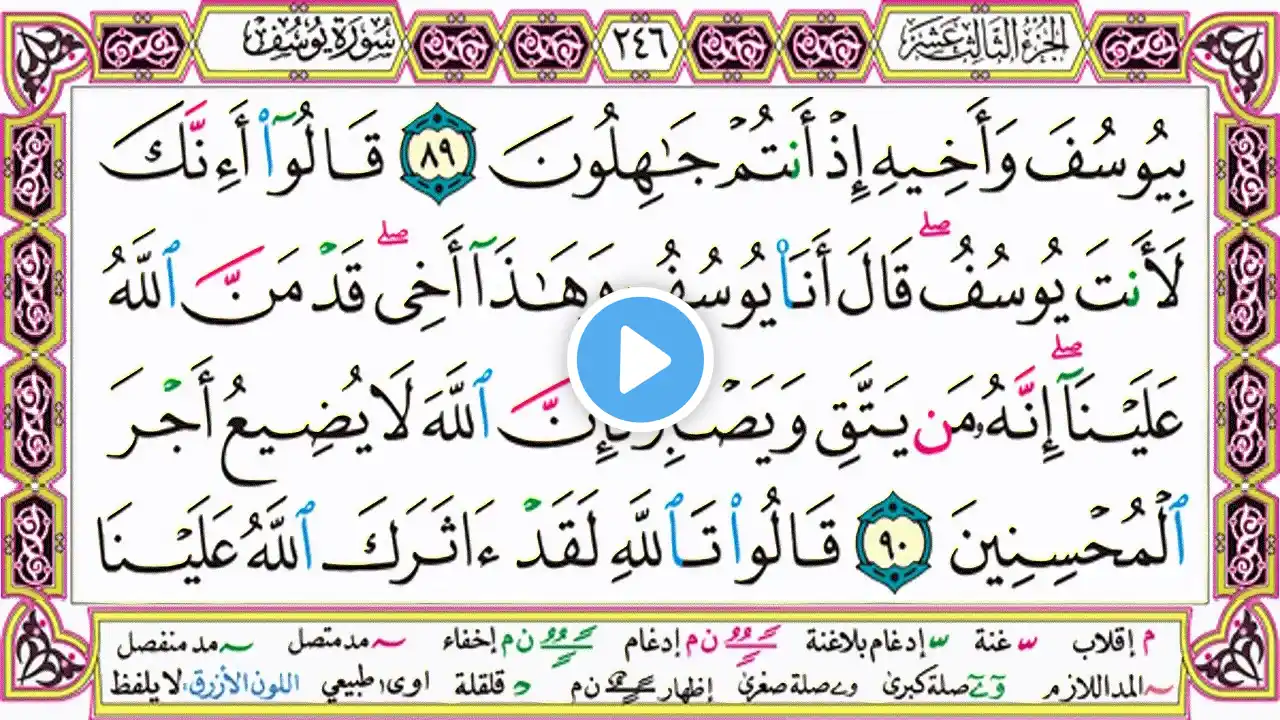 سُورَةُ يُوسُفَ ٢٤٦ الجُزْءُ الثَّالِثَ عَشَرَ
بِيُوسُفَ وَأَخِيهِ إِذۡ أَنتُمۡ جَٰهِلُونَ ٨٩ قَالُوٓاْ أَءِنَّكَ
لَأَنتَ يُوسُفُۖ قَالَ أَنَا۠ يُوسُفُ وَهَٰذَآ أَخِيۖ قَدۡ مَنَّ ٱللَّهُ
عَلَيۡنَآۖ إِنَّهُۥ مَن يَتَّقِ وَيَصۡبِرۡ فَإِنَّ ٱللَّهَ لَا يُضِيعُ أَجۡرَ
ٱلۡمُحۡسِنِينَ ٩٠ قَالُواْ تَٱللَّهِ لَقَدۡ ءَاثَرَكَ ٱللَّهُ عَلَيۡنَا
م إقلاب غنة إدغام بلاغنة ن م إدغام ن م إخفاء مد متصل مد منفصل
المد اللازم صلة كبرى صلة صغرى إظهار ن م قلقلة اوى طبيعي اللون الأزرق، لا يلفظ